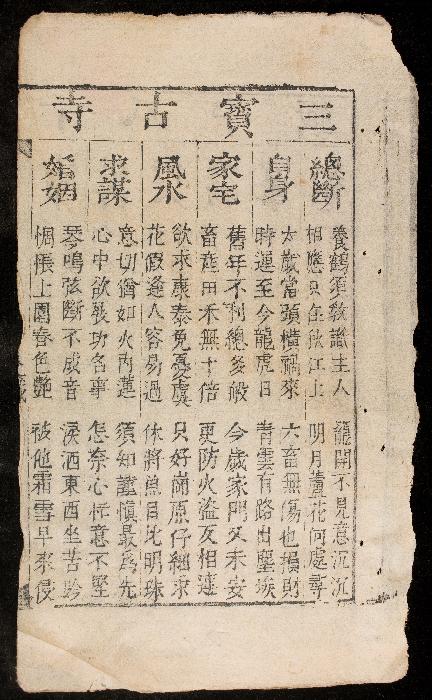 三寶古寺
總斷
養鶴須教識主人 籠開不見意沉沉
相應只在秋江上 明月蘆花何處尋
自身
太歲當頭橫禍來 六畜無傷也損財
時運至今龍虎日 青雲有路出塵埃
家宅
舊年不利總多般 今歲家門又未安
畜蚕田禾無十倍 更防火盜友相連
風水
欲求康泰免憂虞 只好崗原仔細求
花假逢人容易過 休將魚目比明珠
求謀
意切猶如火內蓮 須知謹慎最爲先
心中欲發功名事 怎奈心忙意不堅
婚姻
琴鳴弦斷不成音 淚洒東西坐苦吟
惆悵上園春色艶 被他霜雪早來侵